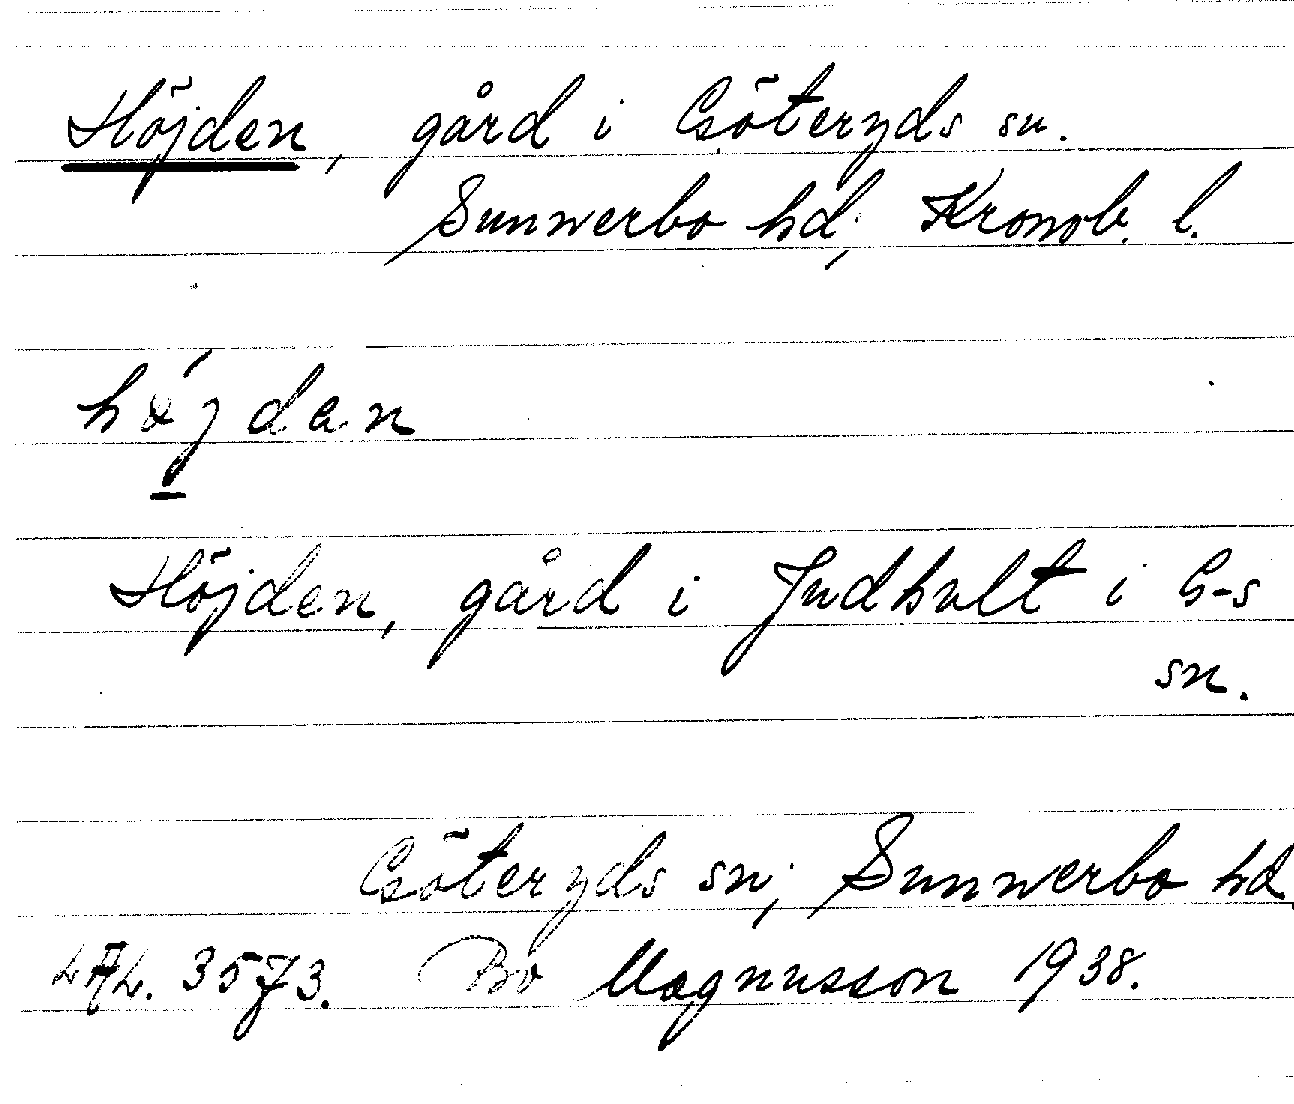 Höjden, gård i Göteryds sn.
Sunnerbo hd; Kronob. l.
höjdan
Höjden, gård i Indhult i G-s
sn.
Göteryds sn; Sunnerbo hd
3573. Bo Magnusson 1938.